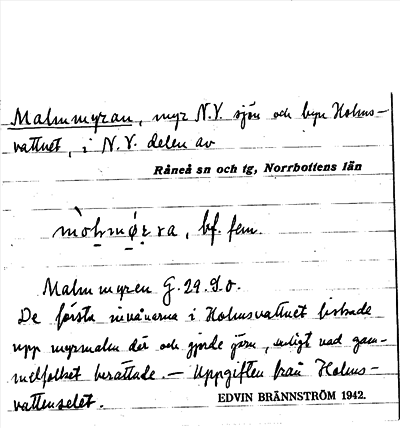 Malmmyran, myr N.V. sjön och byn Holms-
vattnet, i N.V. delen av
Råneå sn och tg, Norrbottens län
bf. fem.
Malmmyren G. 29. 9. o.
De första invånarna i Holmsvattnet fiskade
upp myrmalm där och gjorde järn, enligt vad gam-
melfolket berättade. — Uppgiften från Holms-
vattenselet.
EDVIN BRÄNNSTRÖM 1942.